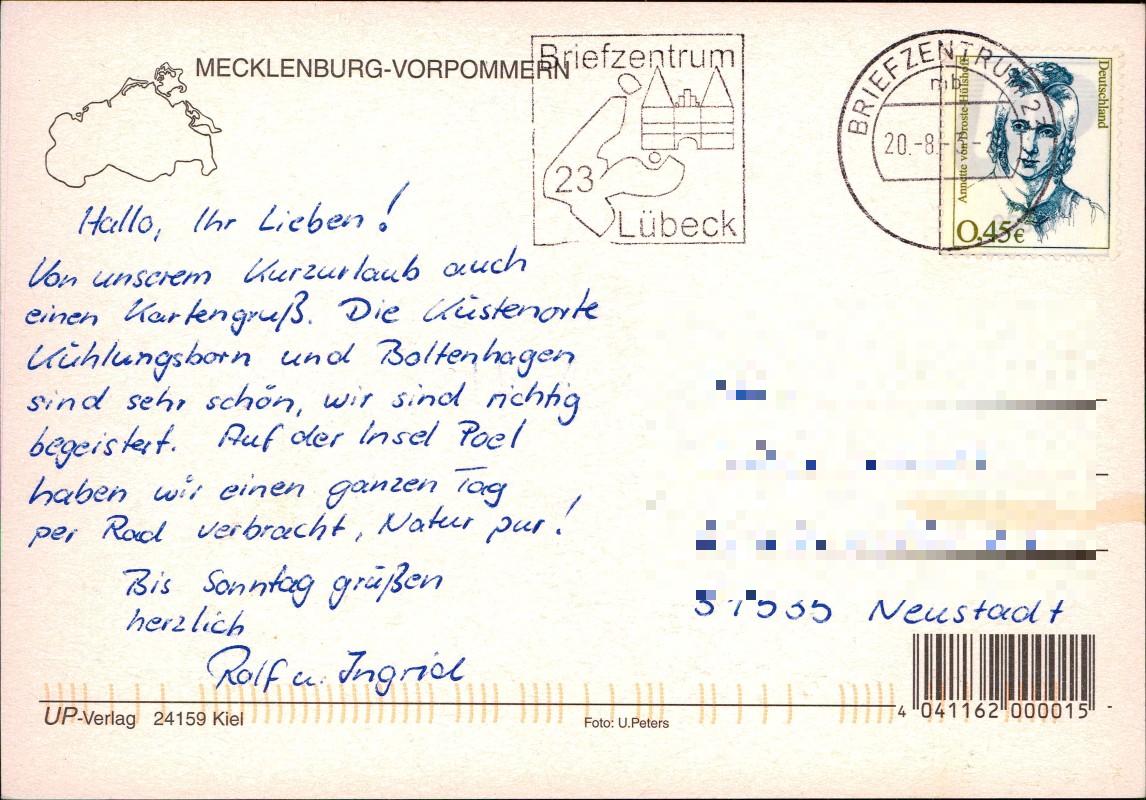 MECKLENBURG-VORPOMMERN
Briefzentrum
23
Lübeck
BRIEFZENTRUM 23
mb
20.-8.
Deutschland
Annette von Droste-Hülshoff
0,45€
Hallo, Ihr Lieben!
Von unserem Kurzurlaub auch
einen Kartengruß. Die Küstenorte
Kühlungsborn und Boltenhagen
sind sehr schön, wir sind richtig
begeistert. Auf der Insel Poel
haben wir einen ganzen Tag
per Rad verbracht, Natur pur!
Bis Sonntag grüßen
herzlich
Rolf u. Ingrid
31535 Neustadt
UP-Verlag 24159 Kiel
Foto: U.Peters
4 041162 000015